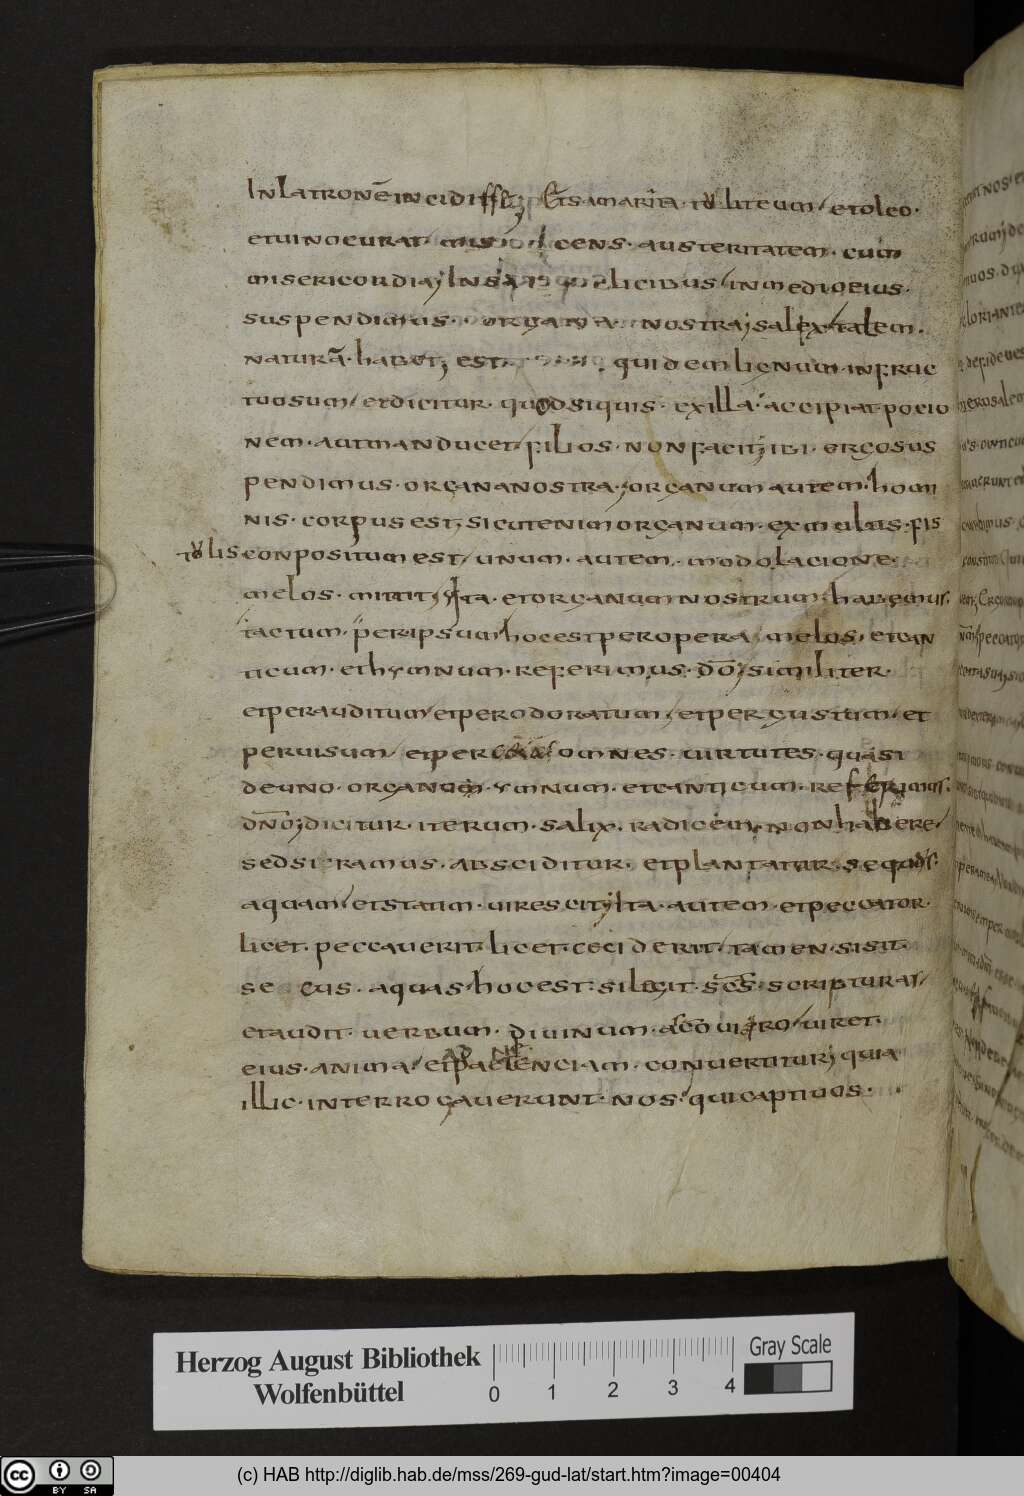 In latronē incidisse; & samarita tulit eum, et oleo.
et uino curat. mis cens. austeritatem. cum
misericordia; In salicibus, in medio eius.
suspendimus. organa. nostra; salix talem.
naturā. habet; est. quidem lignum. infruc
tuosum, et dicitur. quod siquis. ex illa. accipiat pocio
nem. aut manducet, filios. non facit; ibi. ergo sus
pendimus. organa nostra; organum autem. homi
nis. corpus est; sicut enim organum. ex multis. fis
tulis conpositum est, unum. autem. modolacione.
melos. mittit; Ita. et organum nostrum, habemus.
tactum. per ipsum, hoc est per opera, melos, et can
ticum. et hymnum. referimus. dō; similiter.
et per auditum, et per odoratum, et per gustum. et
per uisum, et per omnes. uirtutes. quasi
de uno. organum. ymnum. et canticum. referimus.
dño; dicitur. iterum. salix. radicem. non habere,
sed si ramus. absciditur. et plantatur. secus.
aquam, et statim. uirescit; Ita. autem. et peccator.
licet. peccauerit. licet. ceciderit, tamen. si sit.
secus. aquas, hoc est. si legit. scās. scripturas,
et audit. uerbum. diuinum. uiret.
eius. anima, et ad penitenciam. conuertitur; quia
illic. interrogauerunt. nos. qui captiuos.
Herzog August Bibliothek
Wolfenbüttel
0 1 2 3 4
Gray Scale
cc BY SA
(c) HAB http://diglib.hab.de/mss/269-gud-lat/start.htm?image=00404